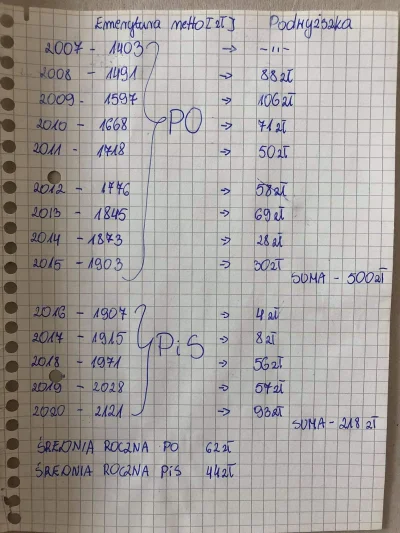 Emerytura netto [zł] Podwyżka
2007 - 1403 → -''-
2008 - 1491 → 88zł
2009 - 1597 → 106zł
2010 - 1668 PO → 71zł
2011 - 1718 → 50zł
2012 - 1776 → 58zł
2013 - 1845 → 69zł
2014 - 1873 → 28zł
2015 - 1903 → 30zł
SUMA - 500zł
2016 - 1907 → 4zł
2017 - 1915 PiS → 8zł
2018 - 1971 → 56zł
2019 - 2028 → 57zł
2020 - 2121 → 93zł
SUMA - 218 zł
ŚREDNIA ROCZNA PO 62zł
ŚREDNIA ROCZNA PiS 44zł